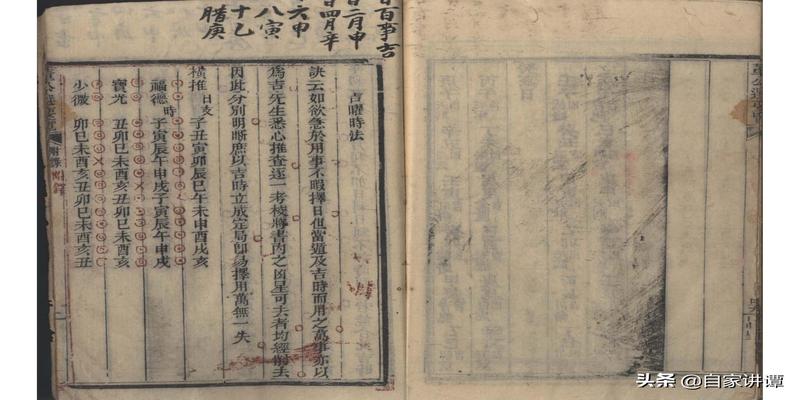 百事吉
二月申
四月辛
六申
八寅
十乙
腊庚
吉曜時法
訣云如欲急於用事不暇擇日但當遁及吉時而用之萬事亦以
為吉先生悉心推查逐一考校將書內之凶星可去者均經削去
因此分別明晰庶以吉時立成定局即易擇用萬無一失
橫推 日支 子丑寅卯辰巳午未申酉戌亥
福德 時 子寅辰午申戌子寅辰午申戌
寶光 丑卯巳未酉亥丑卯巳未酉亥
少微 卯巳未酉亥丑卯巳未酉亥丑
头条 @自家讲谭